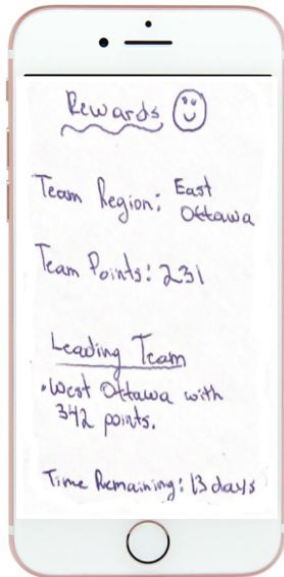 Rewards
Team Region: East
Ottawa
Team Points: 231
Leading Team
• West Ottawa with
342 points.
Time Remaining: 13 days